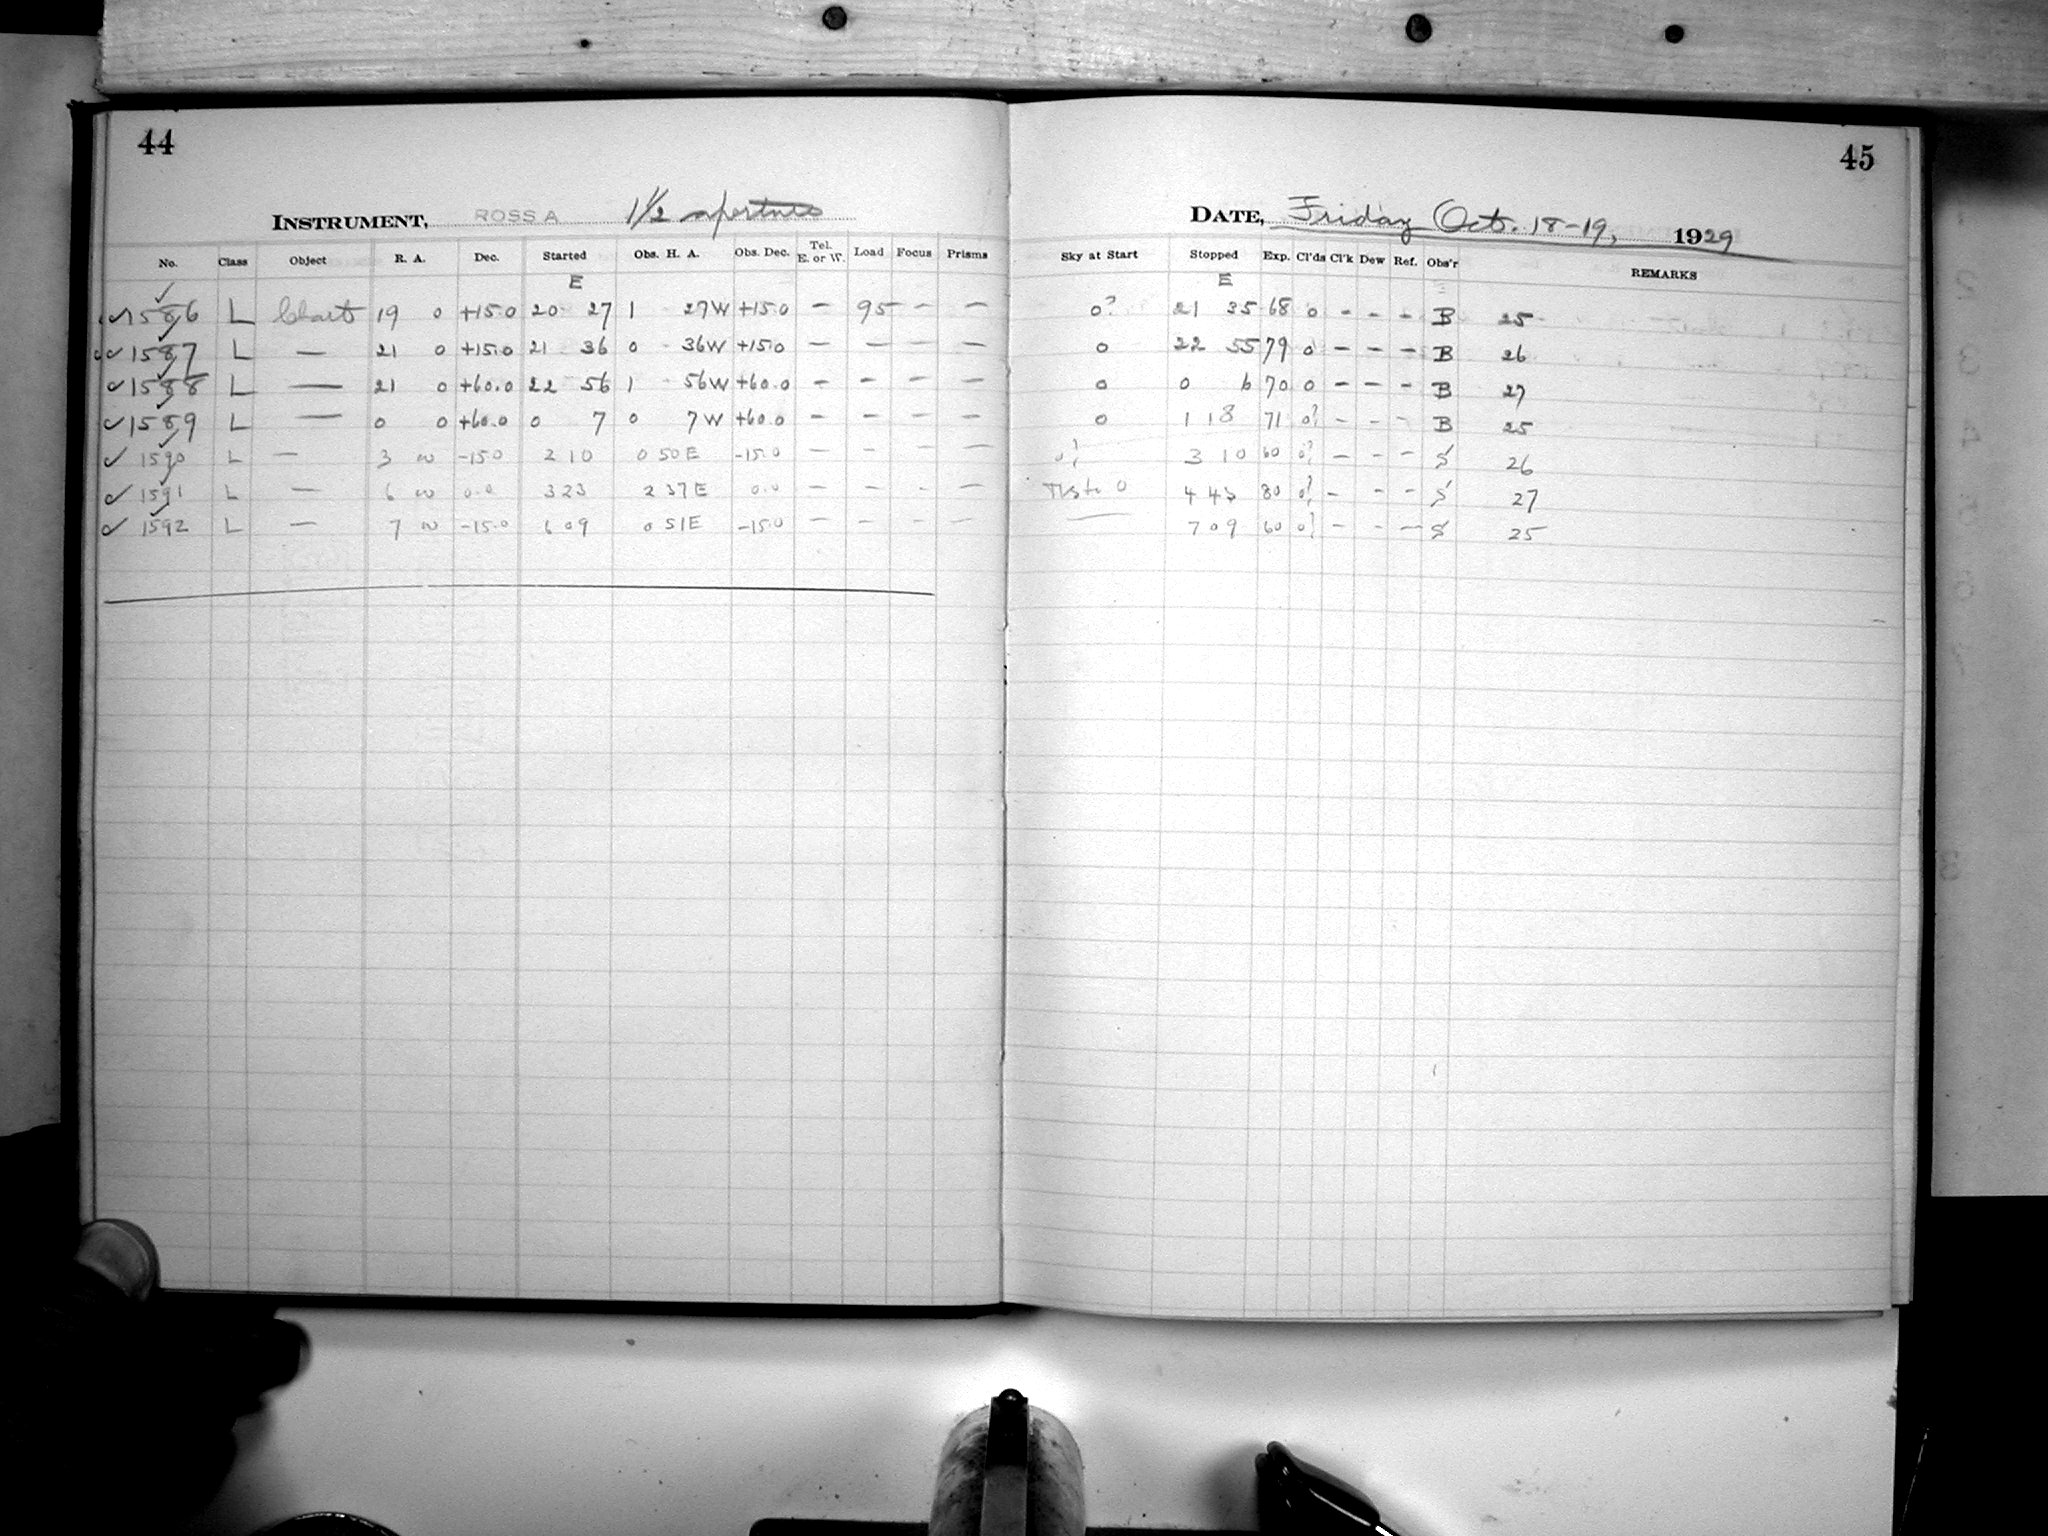 44
INSTRUMENT, ROSS A 1/2 aperture
No. Class Object R. A. Dec. Started Obs. H. A. Obs. Dec. Tel. E. or W. Load Focus Prisms
E
✓1586 L Chart 19 0 +15.0 20 27 1 27W +15.0 — 95 — —
✓1587 L — 21 0 +15.0 21 36 0 36W +15.0 — — — —
✓1588 L — 21 0 +60.0 22 56 1 56W +60.0 — — — —
✓1589 L — 0 0 +60.0 0 7 0 7W +60.0 — — — —
✓1590 L — 3 00 -15.0 2 10 0 50E -15.0 — — — —
✓1591 L — 6 00 0.0 3 23 2 37E 0.0 — — — —
✓1592 L — 7 00 -15.0 6 09 0 51E -15.0 — — — —
45
DATE, Friday Oct. 18-19, 1929
Sky at Start Stopped Exp. Cl'ds Cl'k Dew Ref. Obs'r REMARKS
E
0? 21 35 68 0 - - - B 25
0 22 55 79 0 - - - B 26
0 0 6 70 0 - - - B 27
0 1 18 71 0? - - - B 25
0? 3 10 60 0? - - - S 26
0 4 43 80 0? - - - S 27
— 7 09 60 0? - - - S 25